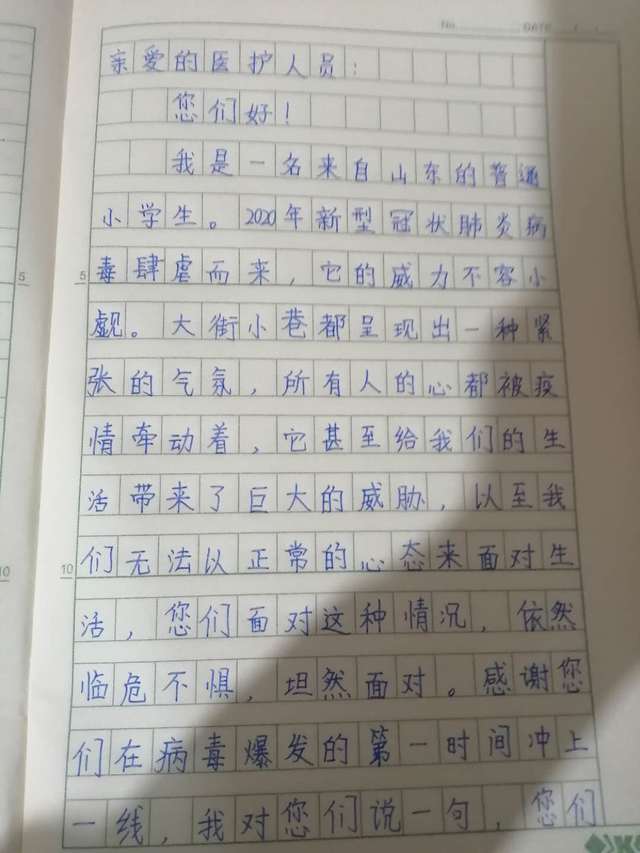 No. DATE / /
亲爱的医护人员：
您们好！
我是一名来自山东的普通
小学生。2020年新型冠状肺炎病
毒肆虐而来，它的威力不容小
觑。大街小巷都呈现出一种紧
张的气氛，所有人的心都被疫
情牵动着，它甚至给我们的生
活带来了巨大的威胁，以至我
们无法以正常的心态来面对生
活，您们面对这种情况，依然
临危不惧，坦然面对。感谢您
们在病毒爆发的第一时间冲上
一线，我对您们说一句，您们
5
5
10
10